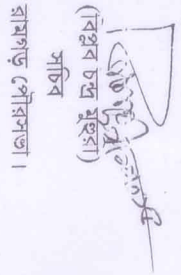 (বিপ্লব চন্দ্র মুহুরী)
সচিব
রামগড় পৌরসভা।